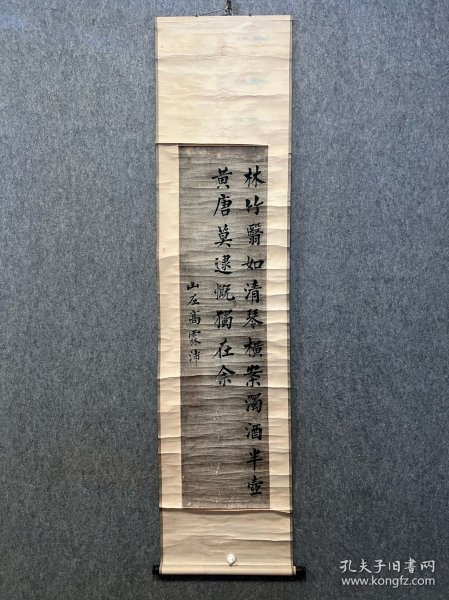 林竹翳如清琴横案濁酒半壺
黄唐莫逮慨獨在余
山左高霖沛
孔夫子旧书网
www.kongfz.com